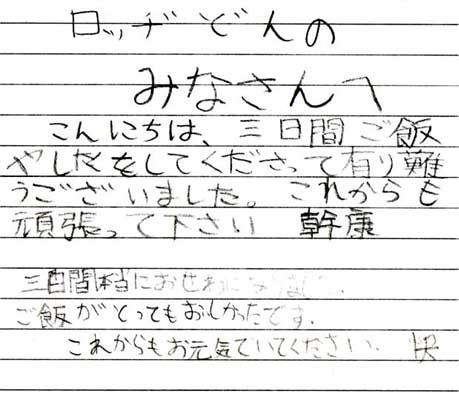 ロッヂどんの
みなさんへ
こんにちは、三日間ご飯
やしたくをしてくださって有り難
うございました。これからも
頑張って下さい 幹康
三日間本当におせわになりました。
ご飯がとってもおしかったです。
これからもお元気でいてください。 快